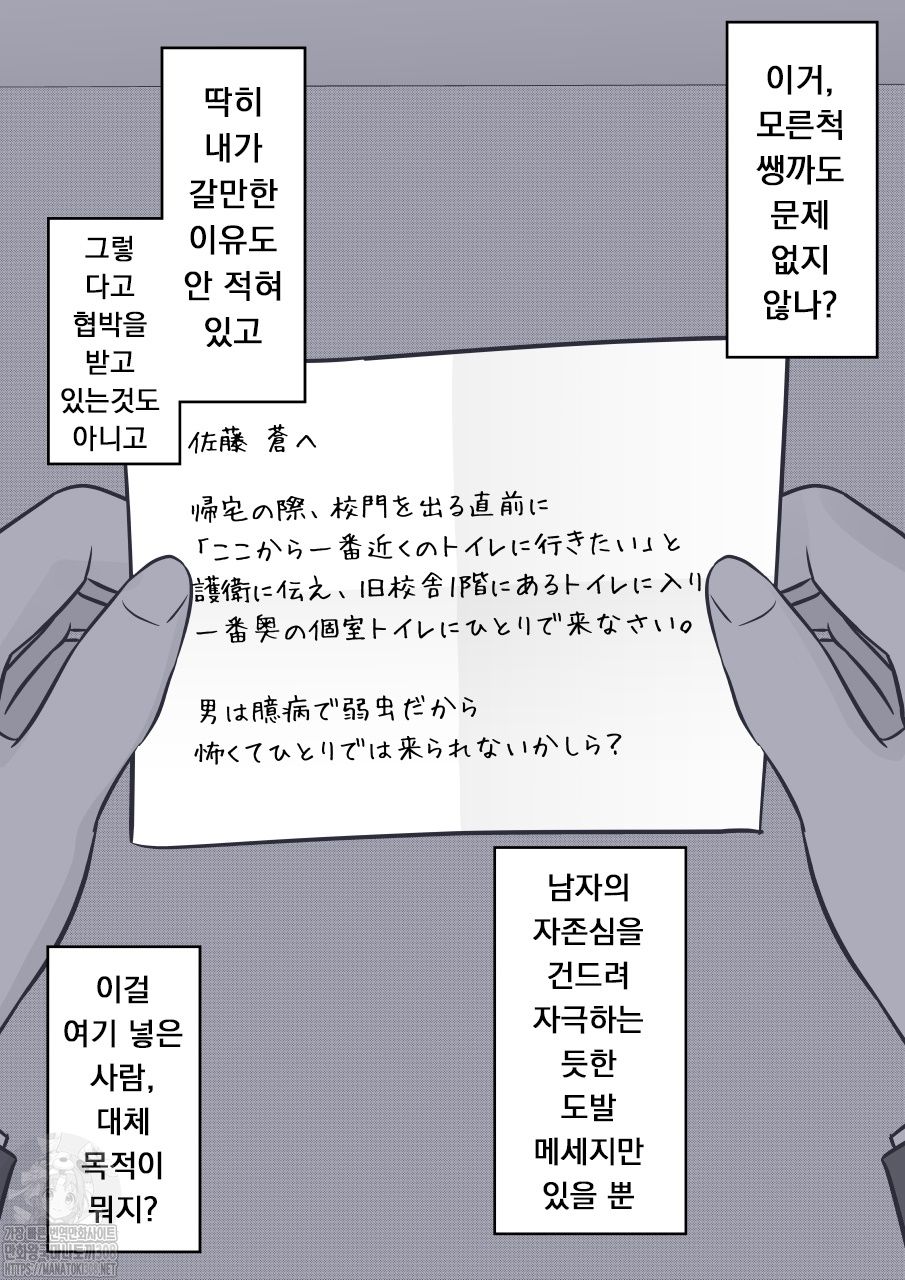 이거,
모른척
쌩까도
문제
없지
않나?
딱히
내가
갈만한
이유도
안 적혀
있고
그렇
다고
협박을
받고
있는것도
아니고
佐藤 蒼へ
帰宅の際、校門を出る直前に
「ここから一番近くのトイレに行きたい」と
護衛に伝え、旧校舎1階にあるトイレに入り
一番奥の個室トイレにひとりで来なさい。
男は臆病で弱虫だから
怖くてひとりでは来られないかしら?
남자의
자존심을
건드려
자극하는
듯한
도발
메세지만
있을 뿐
이걸
여기 넣은
사람,
대체
목적이
뭐지?
가장 빠른 번역만화사이트
만화왕국마나토끼308
HTTPS://MANATOKI308.NET